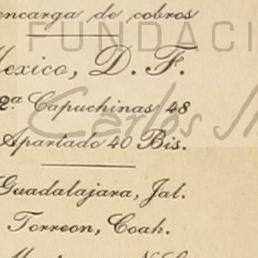 encarga de cobros
FUNDACI
Mexico, D. F.
2ª Capuchinas 48
Carlos
Apartado 40 Bis.
Guadalajara, Jal.
Torreon, Coah.